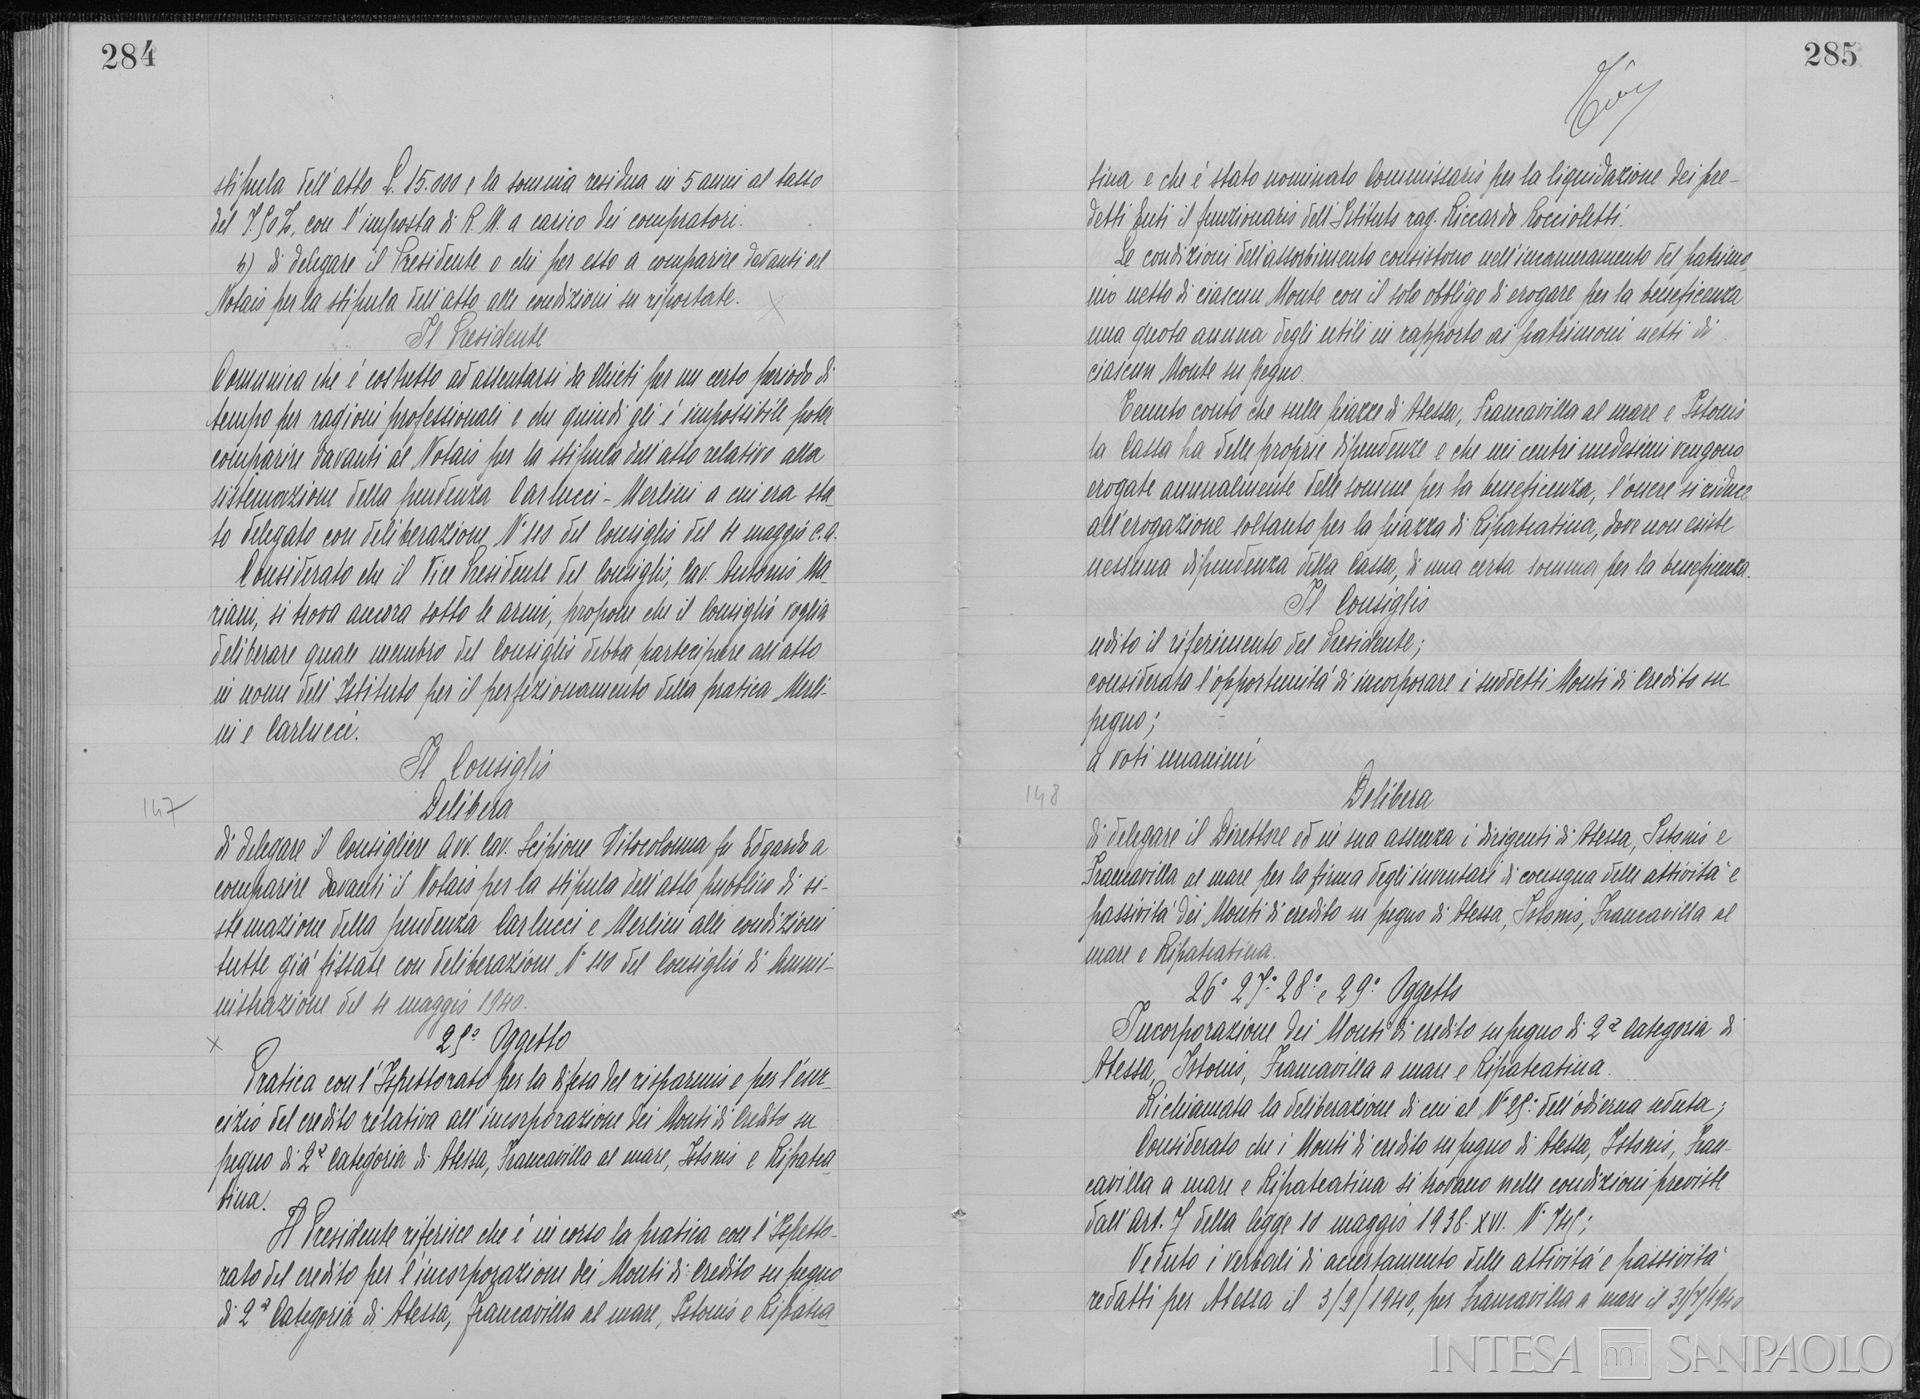 284
stipula dell'atto L. 15.000 e la somma residua in 5 anni al tasso
del 7.50%, con l'imposta di R. M. a carico dei compratori.
b) di delegare il Presidente o chi per esso a comparire davanti al
Notaio per la stipula dell'atto alle condizioni su riportate.
Il Presidente
Comunica che è costretto ad assentarsi da Chieti per un certo periodo di
tempo per ragioni professionali e che quindi gli è impossibile poter
comparire davanti al Notaio per la stipula dell'atto relativo alla
sistemazione della pendenza Carlucci-Merlini a cui era sta-
to delegato con deliberazione N° 110 del Consiglio del 4 maggio c.a.
Considerato che il Vice Presidente del Consiglio, Cav. Antonio Ma-
riani, si trova ancora sotto le armi, propone che il Consiglio voglia
deliberare quale membro del Consiglio debba partecipare all'atto
in nome dell'Istituto per il perfezionamento della pratica Merli-
ni e Carlucci.
Il Consiglio
147
Delibera
di delegare il Consigliere Avv. Cav. Scipione Vitocolonna fu Edgardo a
comparire davanti il Notaio per la stipula dell'atto pubblico di si-
stemazione della pendenza Carlucci e Merlini alle condizioni
tutte già fissate con deliberazione N° 110 del Consiglio di Ammi-
nistrazione del 4 maggio 1940.
25° Oggetto
Pratica con l'Ispettorato per la difesa del risparmio e per l'eser-
cizio del credito relativa all'incorporazione dei Monti di Credito su
pegno di 2ª categoria di Atessa, Francavilla al mare, Istonio e Ripatea
tina.
Il Presidente riferisce che è in corso la pratica con l'Ispetto-
rato del credito per l'incorporazione dei Monti di Credito su pegno
di 2ª Categoria di Atessa, Francavilla al mare, Istonio e Ripatea
285
tina e che è stato nominato Commissario per la liquidazione dei pre-
detti Enti il funzionario dell'Istituto rag. Riccardo Roccioletti.
Le condizioni dell'assorbimento consistono nell'incameramento del patrimo
nio netto di ciascun Monte con il solo obbligo di erogare per la beneficenza
una quota annua degli utili in rapporto ai patrimoni netti di
ciascun Monte su pegno.
Tenuto conto che sulle piazze di Atessa, Francavilla al mare e Istonio
la Cassa ha delle proprie dipendenze e che nei centri medesimi vengono
erogate annualmente delle somme per la beneficenza, l'onere si riduce
all'erogazione soltanto per la piazza di Ripateatina, dove non esiste
nessuna dipendenza della Cassa, di una certa somma per la beneficenza.
Il Consiglio
udito il riferimento del Presidente;
considerata l'opportunità di incorporare i suddetti Monti di Credito su
pegno;
a voti unanimi
148
Delibera
di delegare il Direttore ed in sua assenza i dirigenti di Atessa, Istonio e
Francavilla al mare per la firma degli inventari di consegna delle attività e
passività dei Monti di credito su pegno di Atessa, Istonio, Francavilla al
mare e Ripateatina.
26° 27° 28° e 29° Oggetto
Incorporazione dei Monti di credito su pegno di 2ª categoria di
Atessa, Istonio, Francavilla a mare e Ripateatina.
Richiamata la deliberazione di cui al N° 25° dell'odierna seduta;
Considerato che i Monti di credito su pegno di Atessa, Istonio, Fran-
cavilla a mare e Ripateatina si trovano nelle condizioni previste
dall'art. 7 della legge 10 maggio 1938-XVI. N° 745;
Veduto i verbali di accertamento delle attività e passività
redatti per Atessa il 3/9/1940, per Francavilla a mare il 31/7/1940
INTESA SANPAOLO